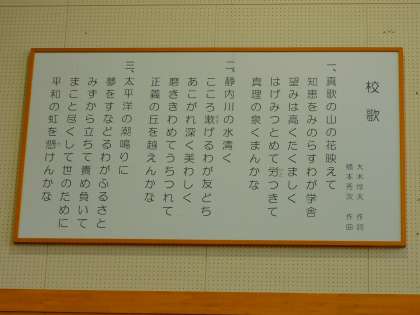 校歌
大木惇夫 作詞
橋本秀次 作曲
一、真歌の山の花映えて
知恵をみのらすわが学舎
望みは高くたくましく
はげみつとめて労つきて
真理の泉くまんかな
二、静内川の水清く
こころ漱げるわが友どち
あこがれ深く美わしく
磨ききわめてうちつれて
正義の丘を越えんかな
三、太平洋の潮鳴りに
夢をすなどるわがふるさと
みずから立ちて責め負いて
まこと尽くして世のために
平和の虹を懸けんかな